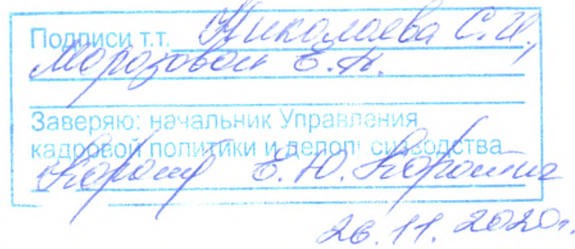 Подписи т.т. Николаева С.И.,
Морозовой Е.Н.
Заверяю: начальник Управления
кадровой политики и делопроизводства
Е.Ю.
26.11.2020г.